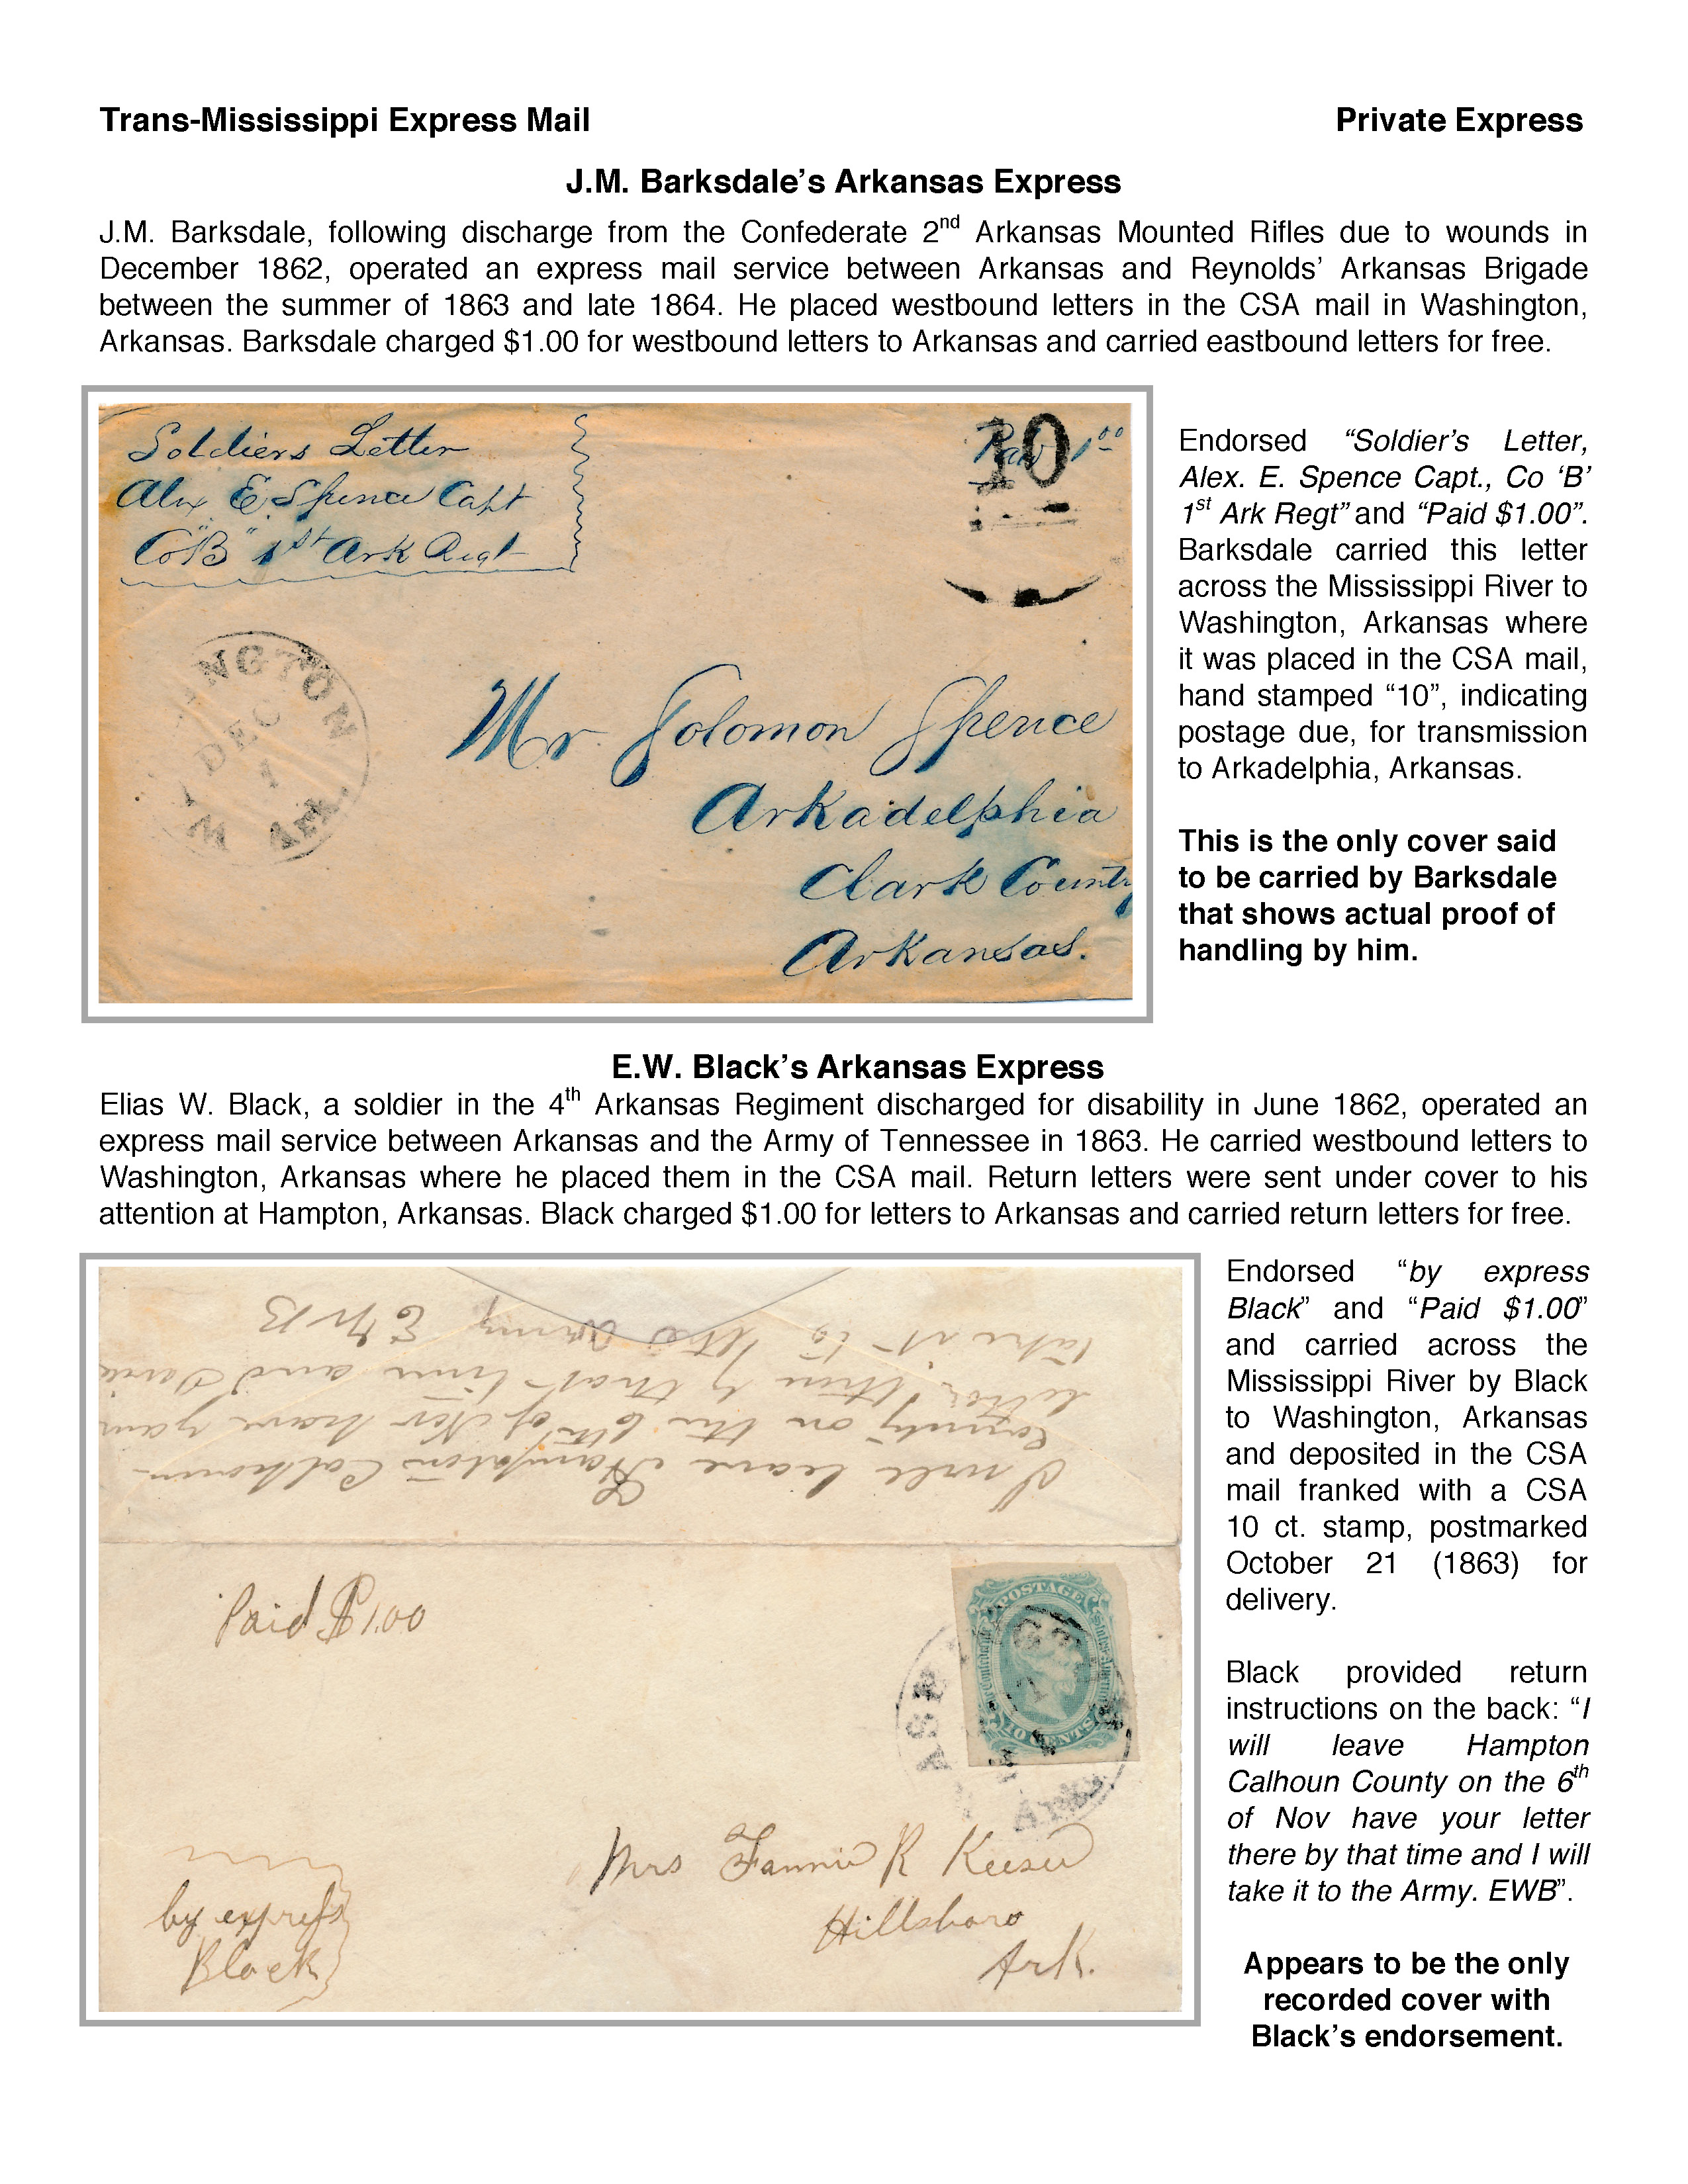 Trans-Mississippi Express Mail Private Express
J.M. Barksdale’s Arkansas Express
J.M. Barksdale, following discharge from the Confederate 2nd Arkansas Mounted Rifles due to wounds in
December 1862, operated an express mail service between Arkansas and Reynolds’ Arkansas Brigade
between the summer of 1863 and late 1864. He placed westbound letters in the CSA mail in Washington,
Arkansas. Barksdale charged $1.00 for westbound letters to Arkansas and carried eastbound letters for free.
Soldiers Letter
Alex E Spence Capt
Co "B" 1st Ark Regt
10
1 00
INGTON
DEC
1
Ark.
Mr Solomon Spence
Arkadelphia
Clark County
Arkansas.
Endorsed “Soldier’s Letter,
Alex. E. Spence Capt., Co ‘B’
1st Ark Regt” and “Paid $1.00”.
Barksdale carried this letter
across the Mississippi River to
Washington, Arkansas where
it was placed in the CSA mail,
hand stamped “10”, indicating
postage due, for transmission
to Arkadelphia, Arkansas.
This is the only cover said
to be carried by Barksdale
that shows actual proof of
handling by him.
E.W. Black’s Arkansas Express
Elias W. Black, a soldier in the 4th Arkansas Regiment discharged for disability in June 1862, operated an
express mail service between Arkansas and the Army of Tennessee in 1863. He carried westbound letters to
Washington, Arkansas where he placed them in the CSA mail. Return letters were sent under cover to his
attention at Hampton, Arkansas. Black charged $1.00 for letters to Arkansas and carried return letters for free.
I will leave Hampton Calhoun
County on the 6th of Nov have your
letter there by that time and I will
take it to the Army EWB
Paid $1.00
POSTAGE
10 CENTS
Ark
Mrs Fannie R
Hillsboro
Ark.
by express
Black
Endorsed “by express
Black” and “Paid $1.00”
and carried across the
Mississippi River by Black
to Washington, Arkansas
and deposited in the CSA
mail franked with a CSA
10 ct. stamp, postmarked
October 21 (1863) for
delivery.
Black provided return
instructions on the back: “I
will leave Hampton
Calhoun County on the 6th
of Nov have your letter
there by that time and I will
take it to the Army. EWB”.
Appears to be the only
recorded cover with
Black’s endorsement.